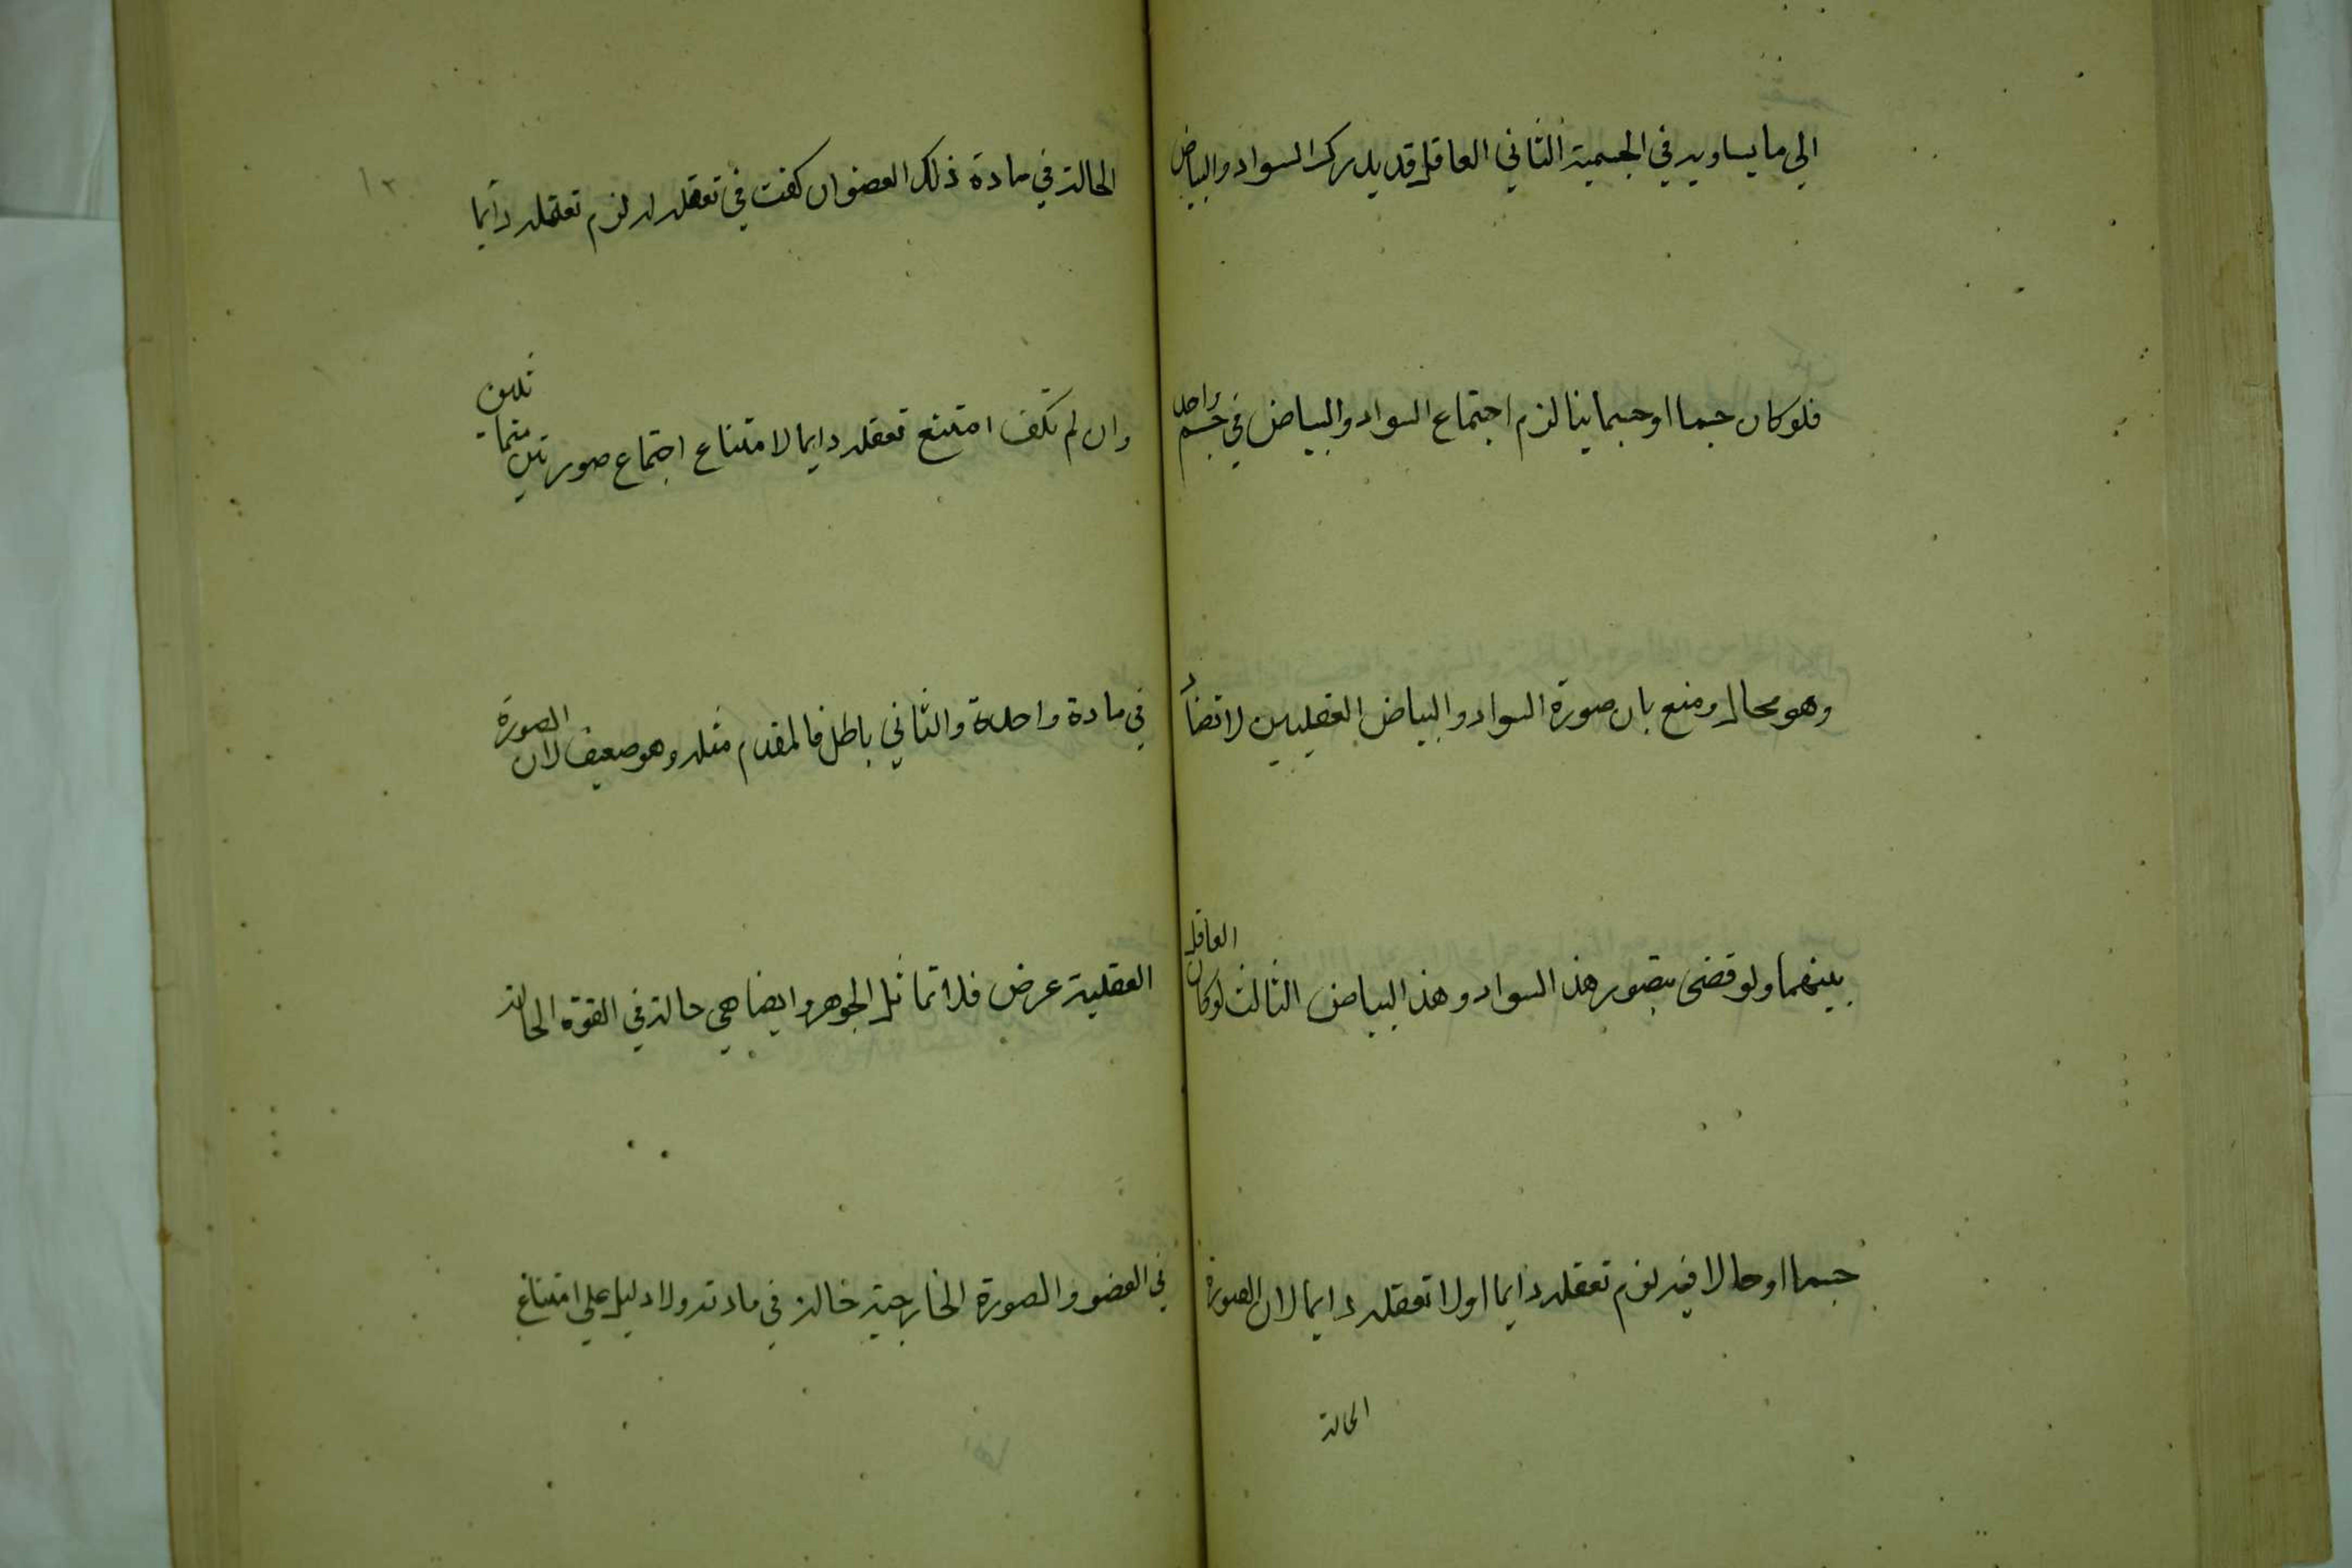 الي ما يساويه في الجسمية الثاني العاقل قد يدرك السواد والبياض
فلو كان جسما او جسمانيا لزم اجتماع السواد والبياض في جسم واحد
وهو محال ومنع بان صورة السواد والبياض العقليين لا تضاد
بينهما ولو قضى بتصور هذ السواد وهذ البياض الثالث لو كان العاقل
جسما او حالا فيه لزم تعقله دايما اولا تعقله دايما لان الصورة
الحالة
١٣
الحالة في مادة ذلك العضو ان كفت في تعقله لزم تعقله دايما
وان لم تكف امتنع تعقله دايما لامتناع اجتماع صورتين متماثلتين
في مادة واحدة والثاني باطل فالمقدم مثله وهو ضعيف لان الصورة
العقلية عرض فلا تماثل الجوهر وايضا هي حالة في القوة الحالة
في العضو والصورة الخارجية حالة في مادته ولا دليل علي امتناع